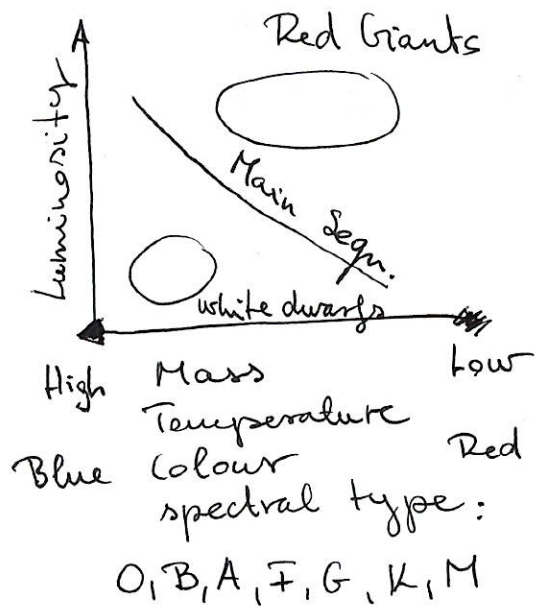 Red Giants
Luminosity
Main Segn.
white dwarfs
High Mass Low
Temperature
Blue Colour Red
spectral type:
O, B, A, F, G, K, M